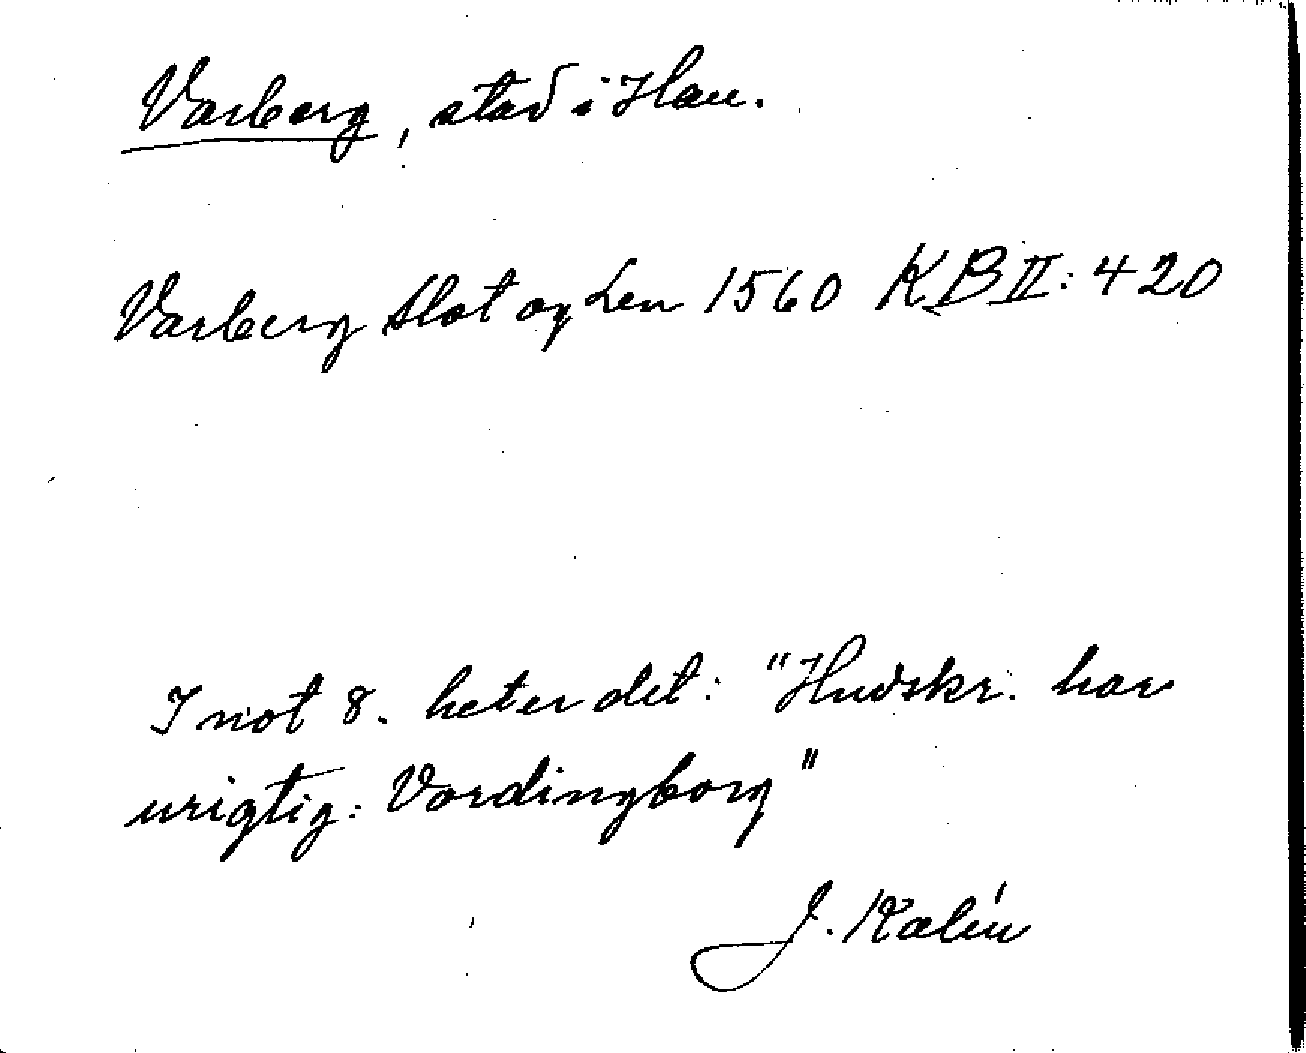 Varberg, stad i Hall.
Varberg Slot og Len 1560 KB II: 420
I not 8. heter det: "Hndskr. har
urigtig: Vordingborg"
J. Kalén